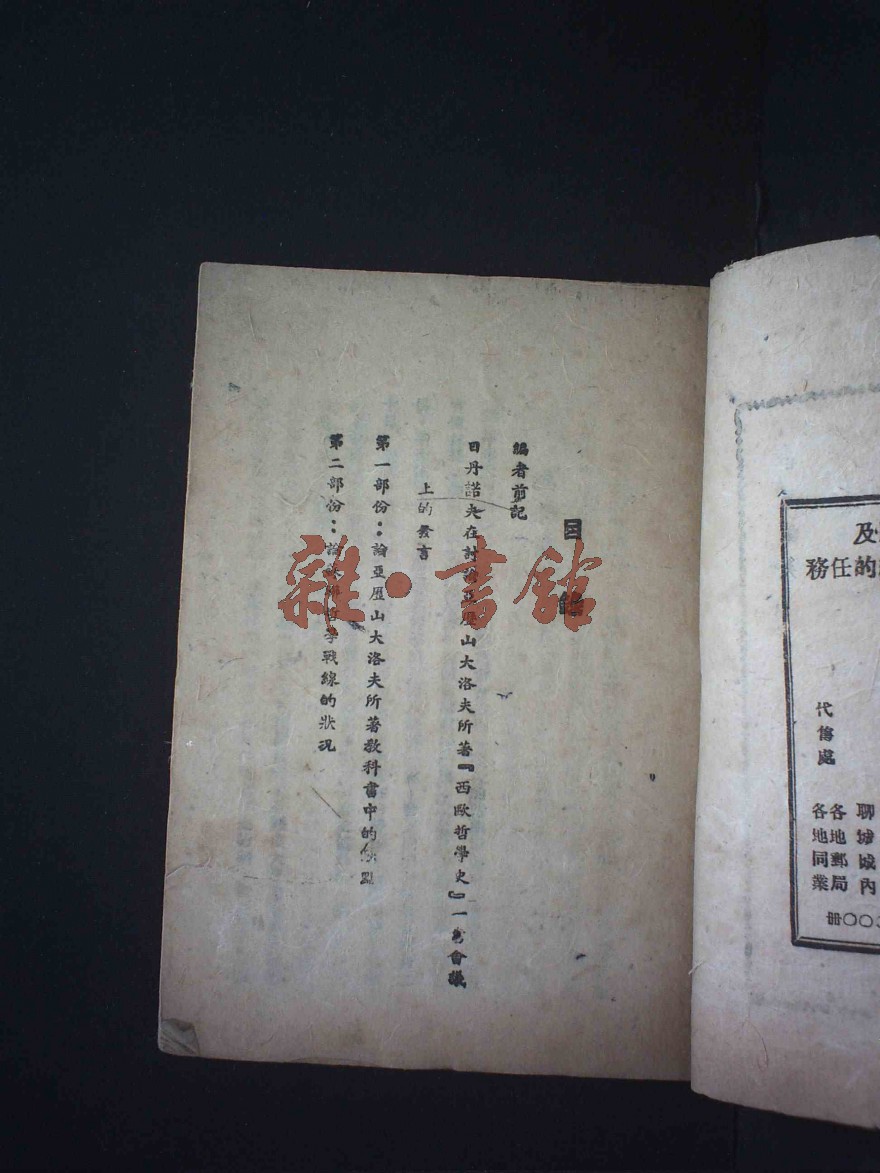 目錄
編者前記
日丹諾夫在討論亞歷山大洛夫所著『西歐哲學史』一書會議
上的發言
第一部份：論亞歷山大洛夫所著教科書中的缺點
第二部份：論 哲學戰線的狀況
雜·書館
及
務任的
代售處
聊城城內
各地郵局
各地同業
冊〇〇